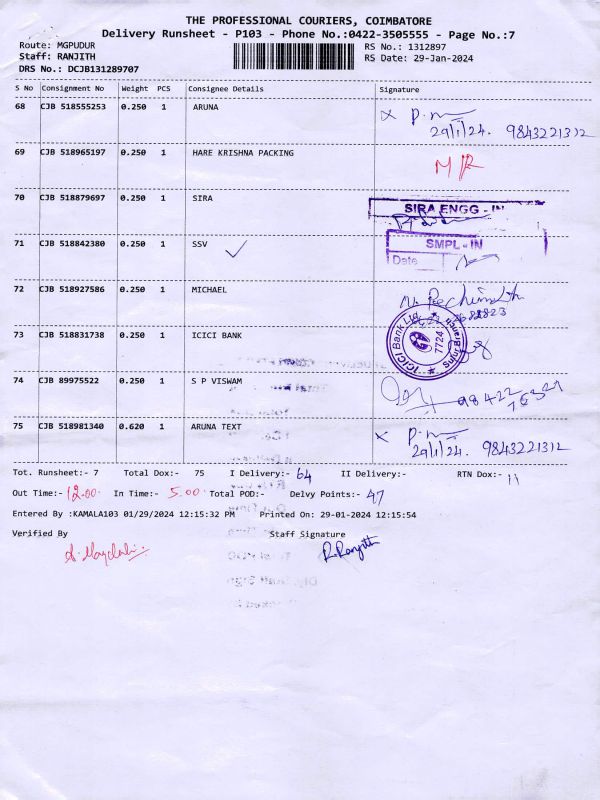 THE PROFESSIONAL COURIERS, COIMBATORE
Delivery Runsheet - P103 - Phone No.:0422-3505555 - Page No.:7
Route: MGPUDUR
RS No.: 1312897
Staff: RANJITH
RS Date: 29-Jan-2024
DRS No.: DCJB131289707
S No Consignment No Weight PCS Consignee Details Signature
68 CJB 518555253 0.250 1 ARUNA
29/1/24. 9843221312
69 CJB 518965197 0.250 1 HARE KRISHNA PACKING
70 CJB 518879697 0.250 1 SIRA SIRA ENGG - IN
71 CJB 518842380 0.250 1 SSV SMPL - IN
Date
72 CJB 518927586 0.250 1 MICHAEL
73 CJB 518831738 0.250 1 ICICI BANK ICICI Bank Ltd. 7724
74 CJB 89975522 0.250 1 S P VISWAM
75 CJB 518981340 0.620 1 ARUNA TEXT
29/1/24. 9843221312
Tot. Runsheet:- 7 Total Dox:- 75 I Delivery:- 64 II Delivery:- RTN Dox:- 11
Out Time:- 12.00 In Time:- 5.00 Total POD:- Delvy Points:- 47
Entered By :KAMALA103 01/29/2024 12:15:32 PM Printed On: 29-01-2024 12:15:54
Verified By Staff Signature
R. Ranjith